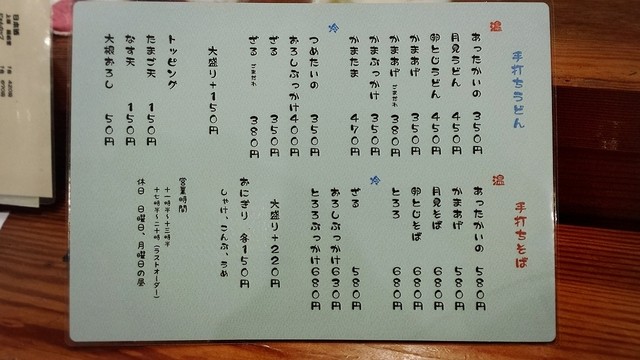 手打ちうどん
温
あったかいの 350円
月見うどん 450円
卵とじうどん 450円
かまあげ 350円
かまあげ ごまだれ 380円
かまぶっかけ 350円
かまたま 470円
冷
つめたいの 350円
おろしぶっかけ 400円
ざる 350円
ざる ごまだれ 380円
大盛り+150円
トッピング
たまご天 150円
なす天 150円
大根おろし 50円
手打ちそば
温
あったかいの 580円
かまあげ 580円
月見そば 680円
卵とじそば 680円
とろろ 680円
冷
ざる 580円
おろしぶっかけ 630円
とろろぶっかけ 680円
大盛り+220円
おにぎり 各150円
しゃけ、こんぶ、うめ
営業時間
十一時半~十三時半
十七時半~二十時(ラストオーダー)
休日 日曜日、月曜日の昼